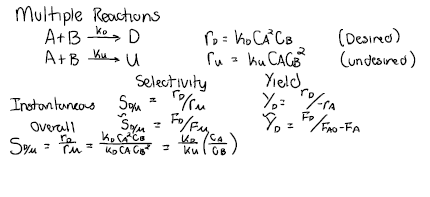 Multiple Reactions
A+B —k_D→ D r_D = k_D C_A² C_B (Desired)
A+B —k_U→ U r_U = k_U C_A C_B² (undesired)
Selectivity Yield
Instantaneous S_D/U = r_D/r_U Y_D = r_D/-r_A
Overall S̃_D/U = F_D/F_U Ỹ_D = F_D/F_A0-F_A
S_D/U = r_D/r_U = k_D C_A² C_B/k_D C_A C_B² = k_D/k_U (C_A/C_B)